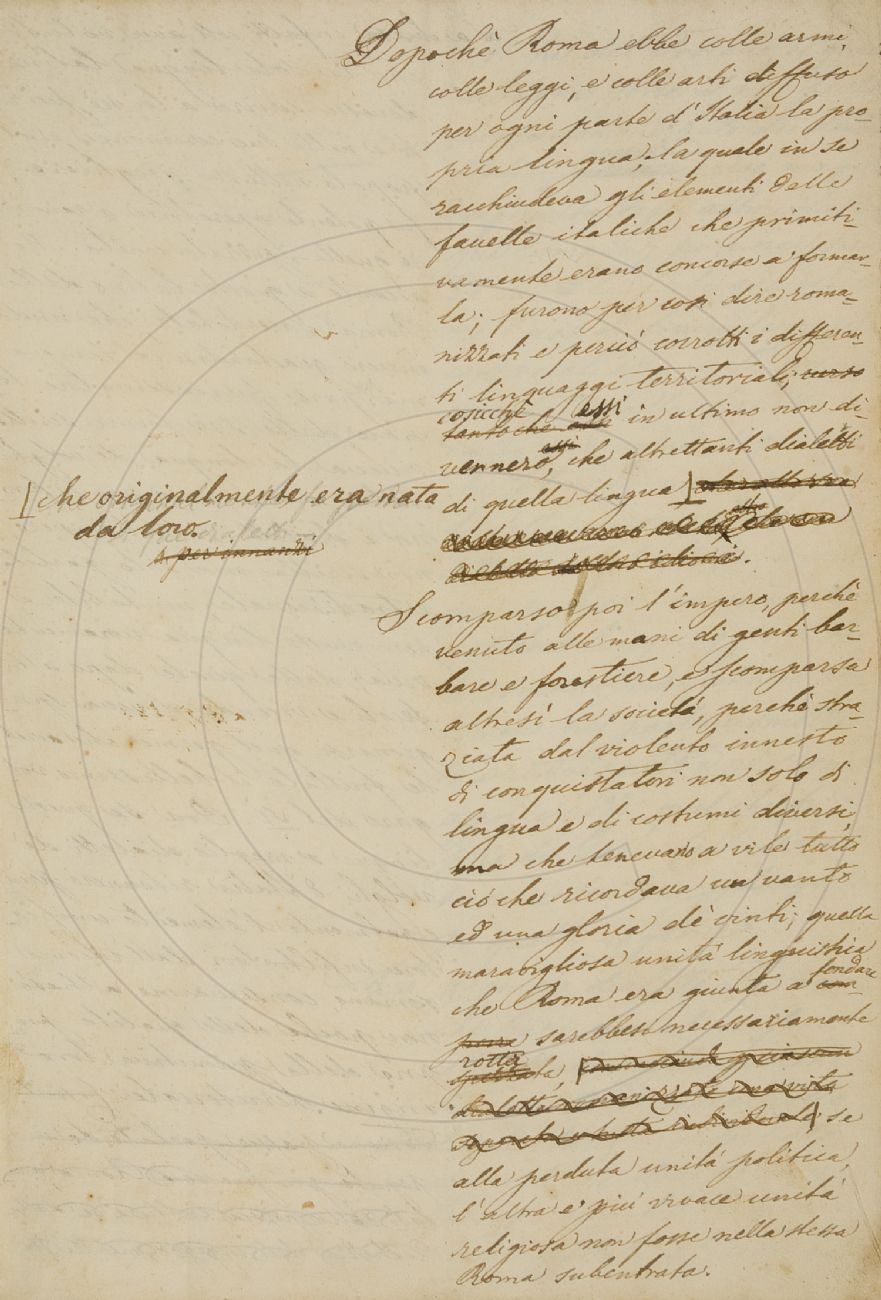 Dopochè Roma ebbe colle armi,
colle leggi, e colle arti diffuso
per ogni parte d'Italia la pro-
pria lingua, la quale in se
racchiudeva gli elementi delle
favelle italiche che primiti-
vamente erano concorse a formar-
la; furono per così dire roma-
nizzati e perciò corrotti i differen-
ti linguaggi territoriali;
cosicchè essi
tanto che in ultimo non di-
essi
vennero, che altrettanti dialetti
di quella lingua
che originalmente era nata
da loro.
per innanzi
Scomparso poi l'impero, perchè
venuto alle mani di genti bar-
bare e forestiere, e scomparsa
altresì la società, perchè stra-
ziata dal violento innesto
di conquistatori non solo di
lingua e di costumi diversi,
ma che tenevano a vile tutto
ciò che ricordava un vanto
ed una gloria de' vinti; quella
maravigliosa unità linguistica
fondare
che Roma era giunta a com-
porre sarebbesi necessariamente
rotta
spezzata,
se
alla perduta unità politica,
l'altra e più vivace unità
religiosa non fosse nella stessa
Roma subentrata.